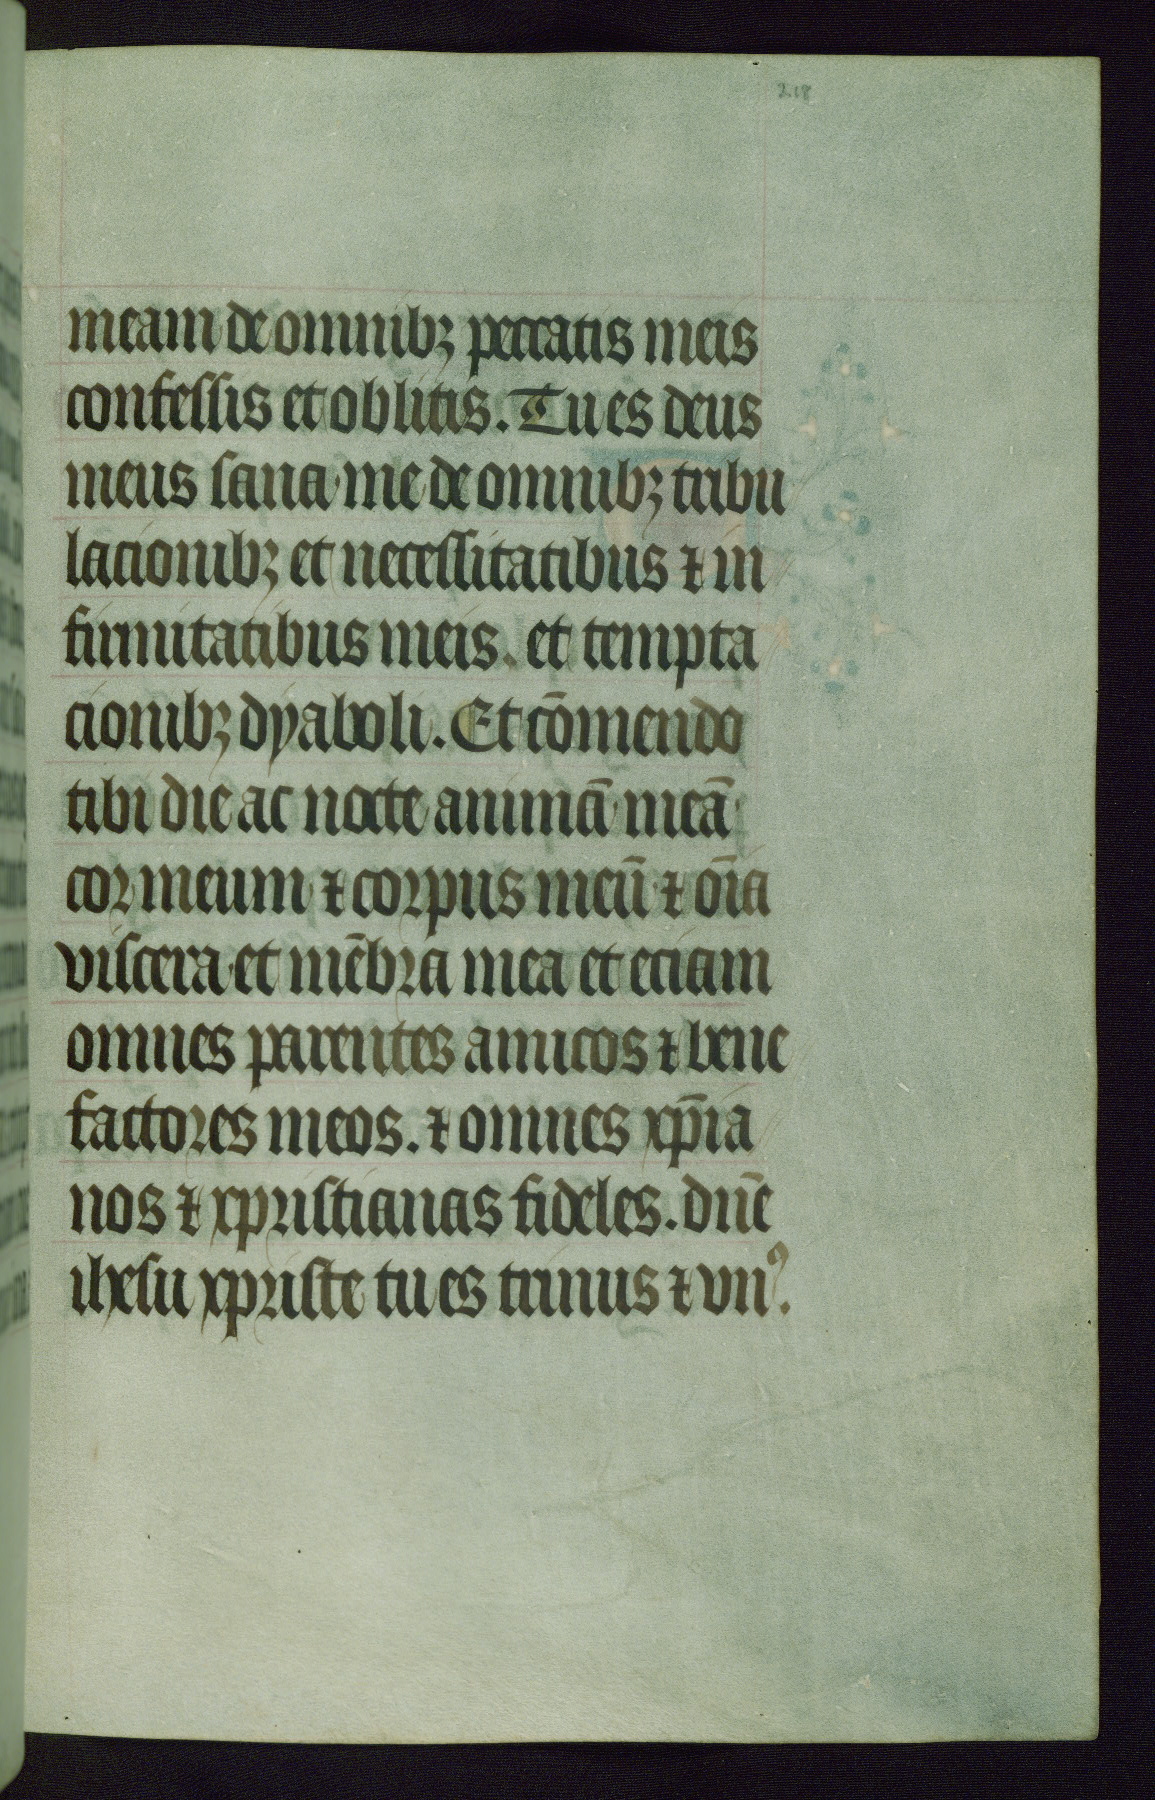 218
meam de omnibꝫ peccatis meis
confessis et oblitis. Tu es deus
meus sana me de omnibꝫ tribu
lacionibꝫ et necessitatibus ⁊ in
firmitatibus meis. et tempta
cionibꝫ dyaboli. Et cōmendo
tibi die ac nocte animā meā
cor meum ⁊ corpus meū ⁊ oīa
viscera et mēbra mea et eciam
omnes parentes amicos ⁊ bene
factores meos. ⁊ omnes xp̄ia
nos ⁊ xpristianas fideles. dn̄e
ihesu xpriste tu es trinus ⁊ vnꝰ.